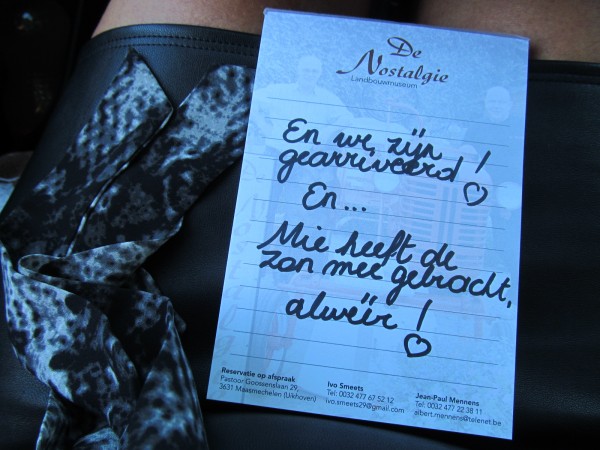 De
Nostalgie
Landbouwmuseum
En we zijn
gearriveerd!
En...
Mie heeft de
zon mee gebracht,
alweir!
Reservatie op afspraak
Pastoor Goossenslaan 29
3631 Maasmechelen (Uikhoven)
Ivo Smeets
Tel: 0032 477 67 52 12
ivo.smeets29@gmail.com
Jean-Paul Mennens
Tel: 0032 477 22 38 11
albert.mennens@telenet.be